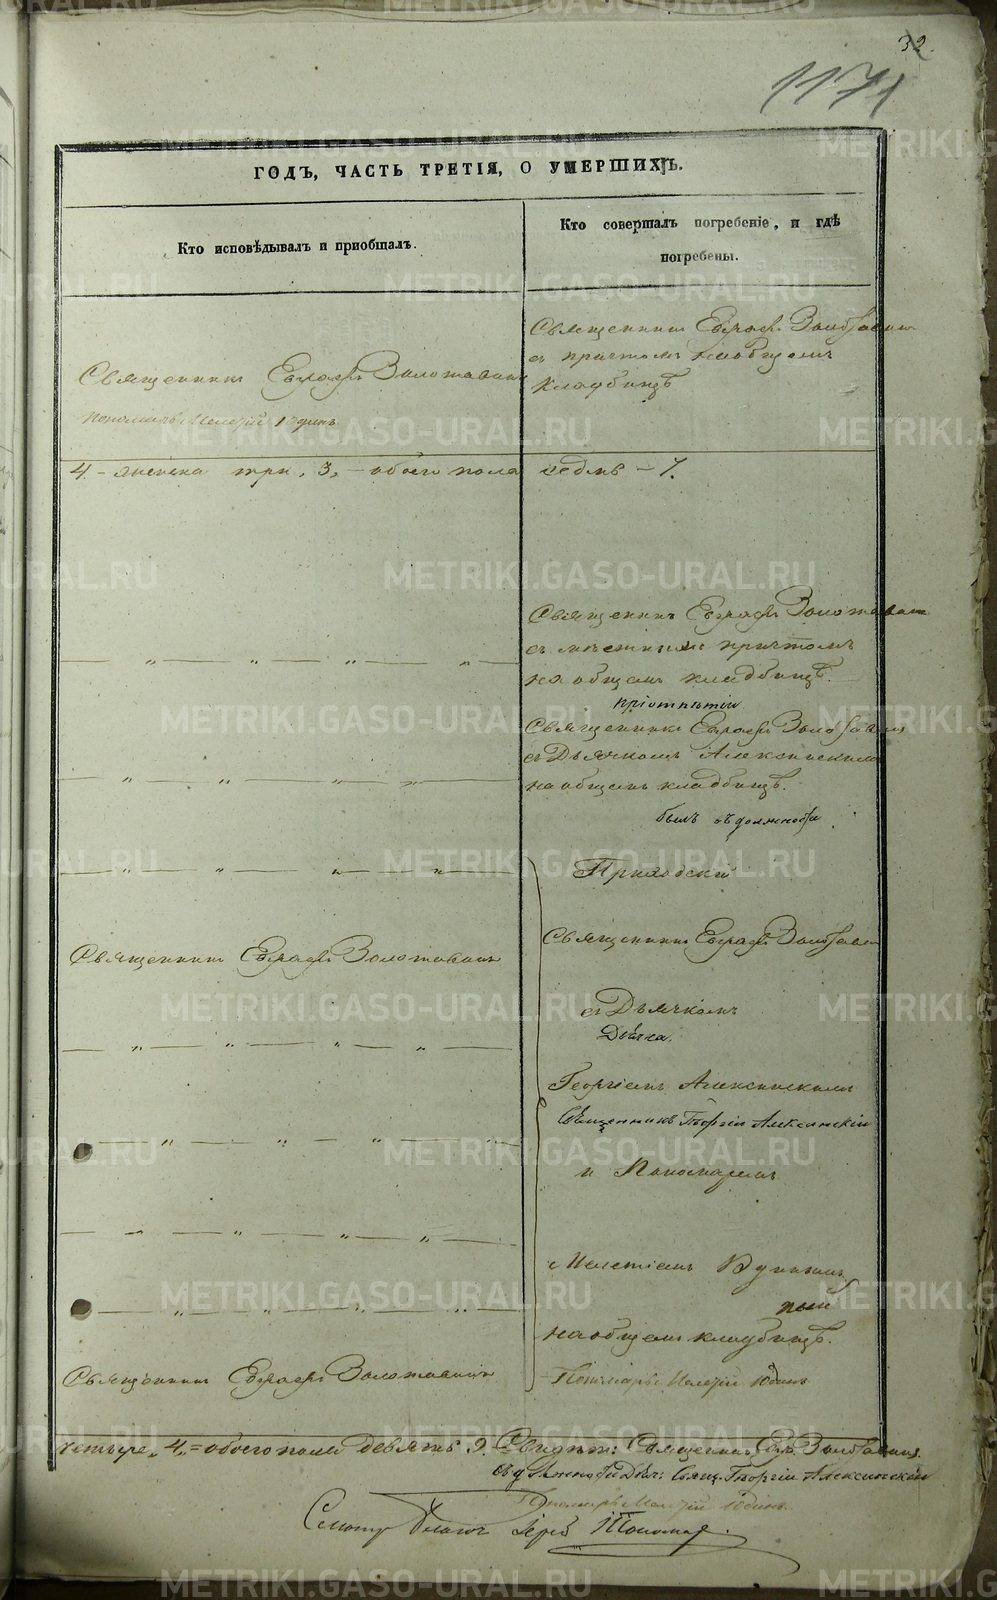 32.
1171
ГОДЪ, ЧАСТЬ ТРЕТІЯ, О УМЕРШИХЪ.
Кто исповѣдывалъ и пріобщалъ.
Кто совершалъ погребеніе, и гдѣ
погребены.
Священникъ Евграфъ Золотавинъ
съ причтомъ на общемъ
кладбищѣ
Священникъ Евграфъ Золотавинъ
Пономарь Мелетій Юдинъ
4 – женска три, 3, – обоего пола седмь – 7.
Священникъ Евграфъ Золотавинъ
съ мѣстнымъ причтомъ
на общемъ кладбищѣ.
при отпѣтіи
Священникъ Евграфъ Золотавинъ
съ Дьячкомъ Алексинскимъ
на общемъ кладбищѣ.
былъ въ должности
Приходскій
Священникъ Евграфъ Золотавинъ
Священникъ Евграфъ Золотавинъ
съ Дьячкомъ
Дьячка
Георгіемъ Алексинскимъ
Священникъ Георгій Алексинскій
и Пономаремъ
Мелетіемъ
на общемъ кладбищѣ.
Священникъ Евграфъ Золотавинъ
Пономарь Мелетій Юдинъ
четыре „4„ = обоего пола девять 9. Свидѣт: Священникъ Евг. Золотавинъ
въ должности Дьяч: Свящ. Георгій Алексинскій
Пономарь Мелетій Юдинъ.
Смотр Благоч Іерей
METRIKI.GASO-URAL.RU